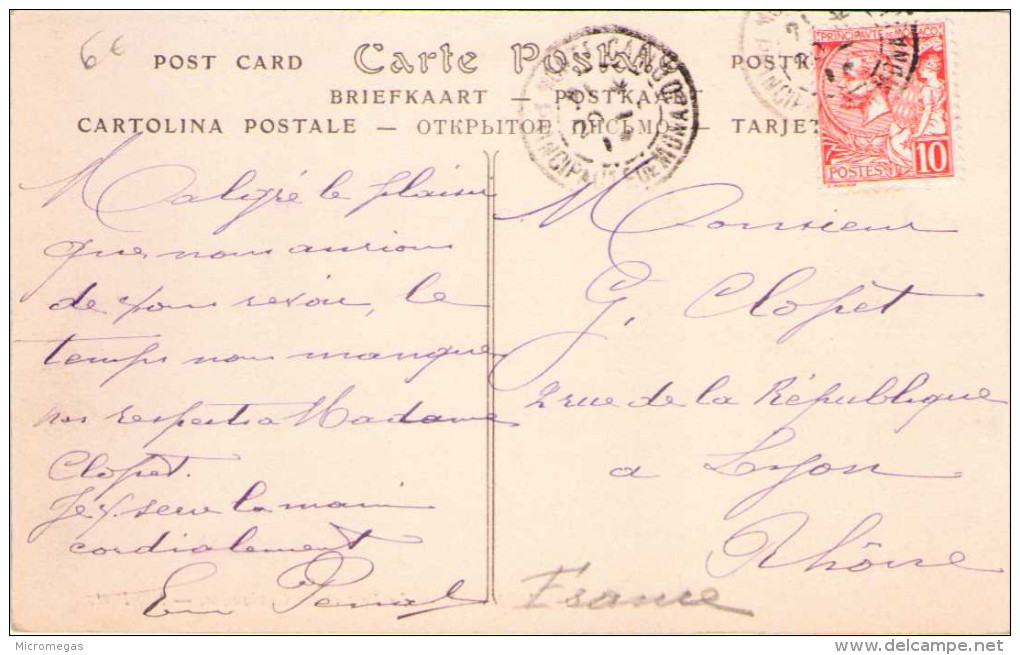 6€
POST CARD Carte Postale
BRIEFKAART — POSTKAART
CARTOLINA POSTALE — ОТКРЫТОЕ ПИСЬМО — TARJET
PRINCIPAUTÉ DE MONACO
POSTES
10
MONTE CARLO
PRINCIPAUTÉ DE MONACO
Malgré le plaisir
que nous aurions
de vous revoir, le
temps nous manque
nos respects a Madame
Clopet.
Je V. serre la main
cordialement
Monsieur
G. Clopèt
2 rue de la République
a Lyon
Rhône
France
Micromegas
delcampe.net